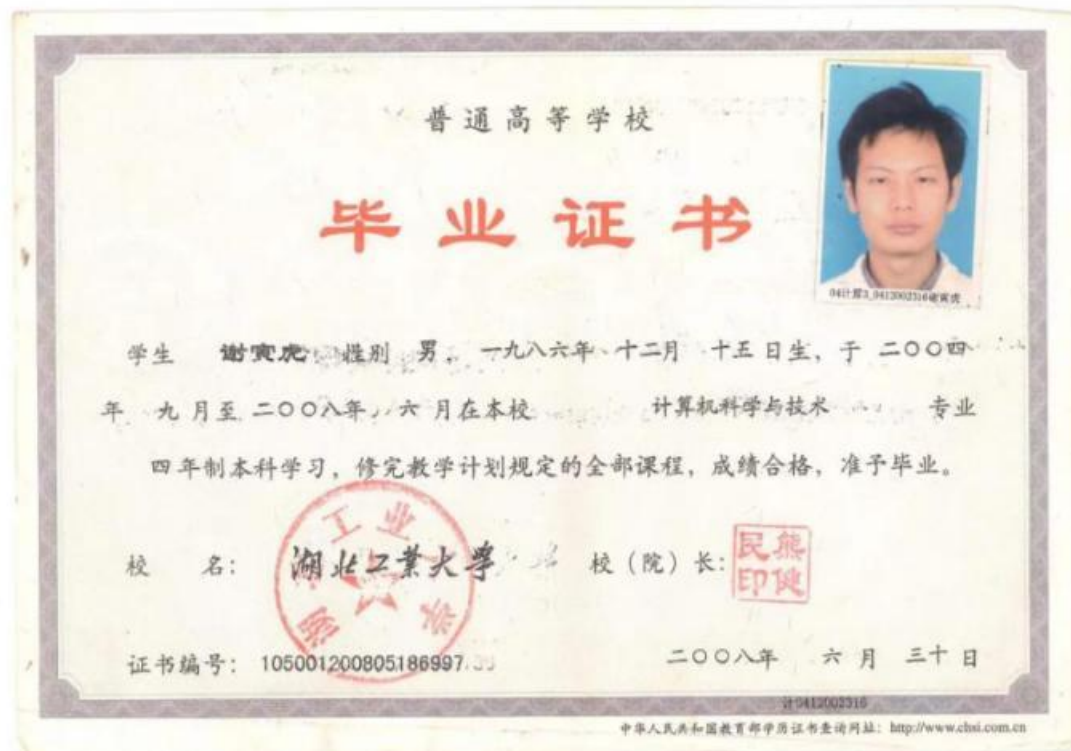 普通高等学校
毕业证书
04计算3_0412002316谢寅虎
学生 谢寅虎 性别 男, 一九八六年 十二月 十五日生, 于 二〇〇四
年 九月至 二〇〇八年 六 月在本校 计算机科学与技术 专业
四年制本科学习, 修完教学计划规定的全部课程, 成绩合格, 准予毕业。
校 名: 湖北工業大學 校(院)长: 熊健民印
湖 工业 学
证书编号: 105001200805186997
二〇〇八年 六 月 三十 日
计0412002316
中华人民共和国教育部学历证书查询网址: http://www.chsi.com.cn